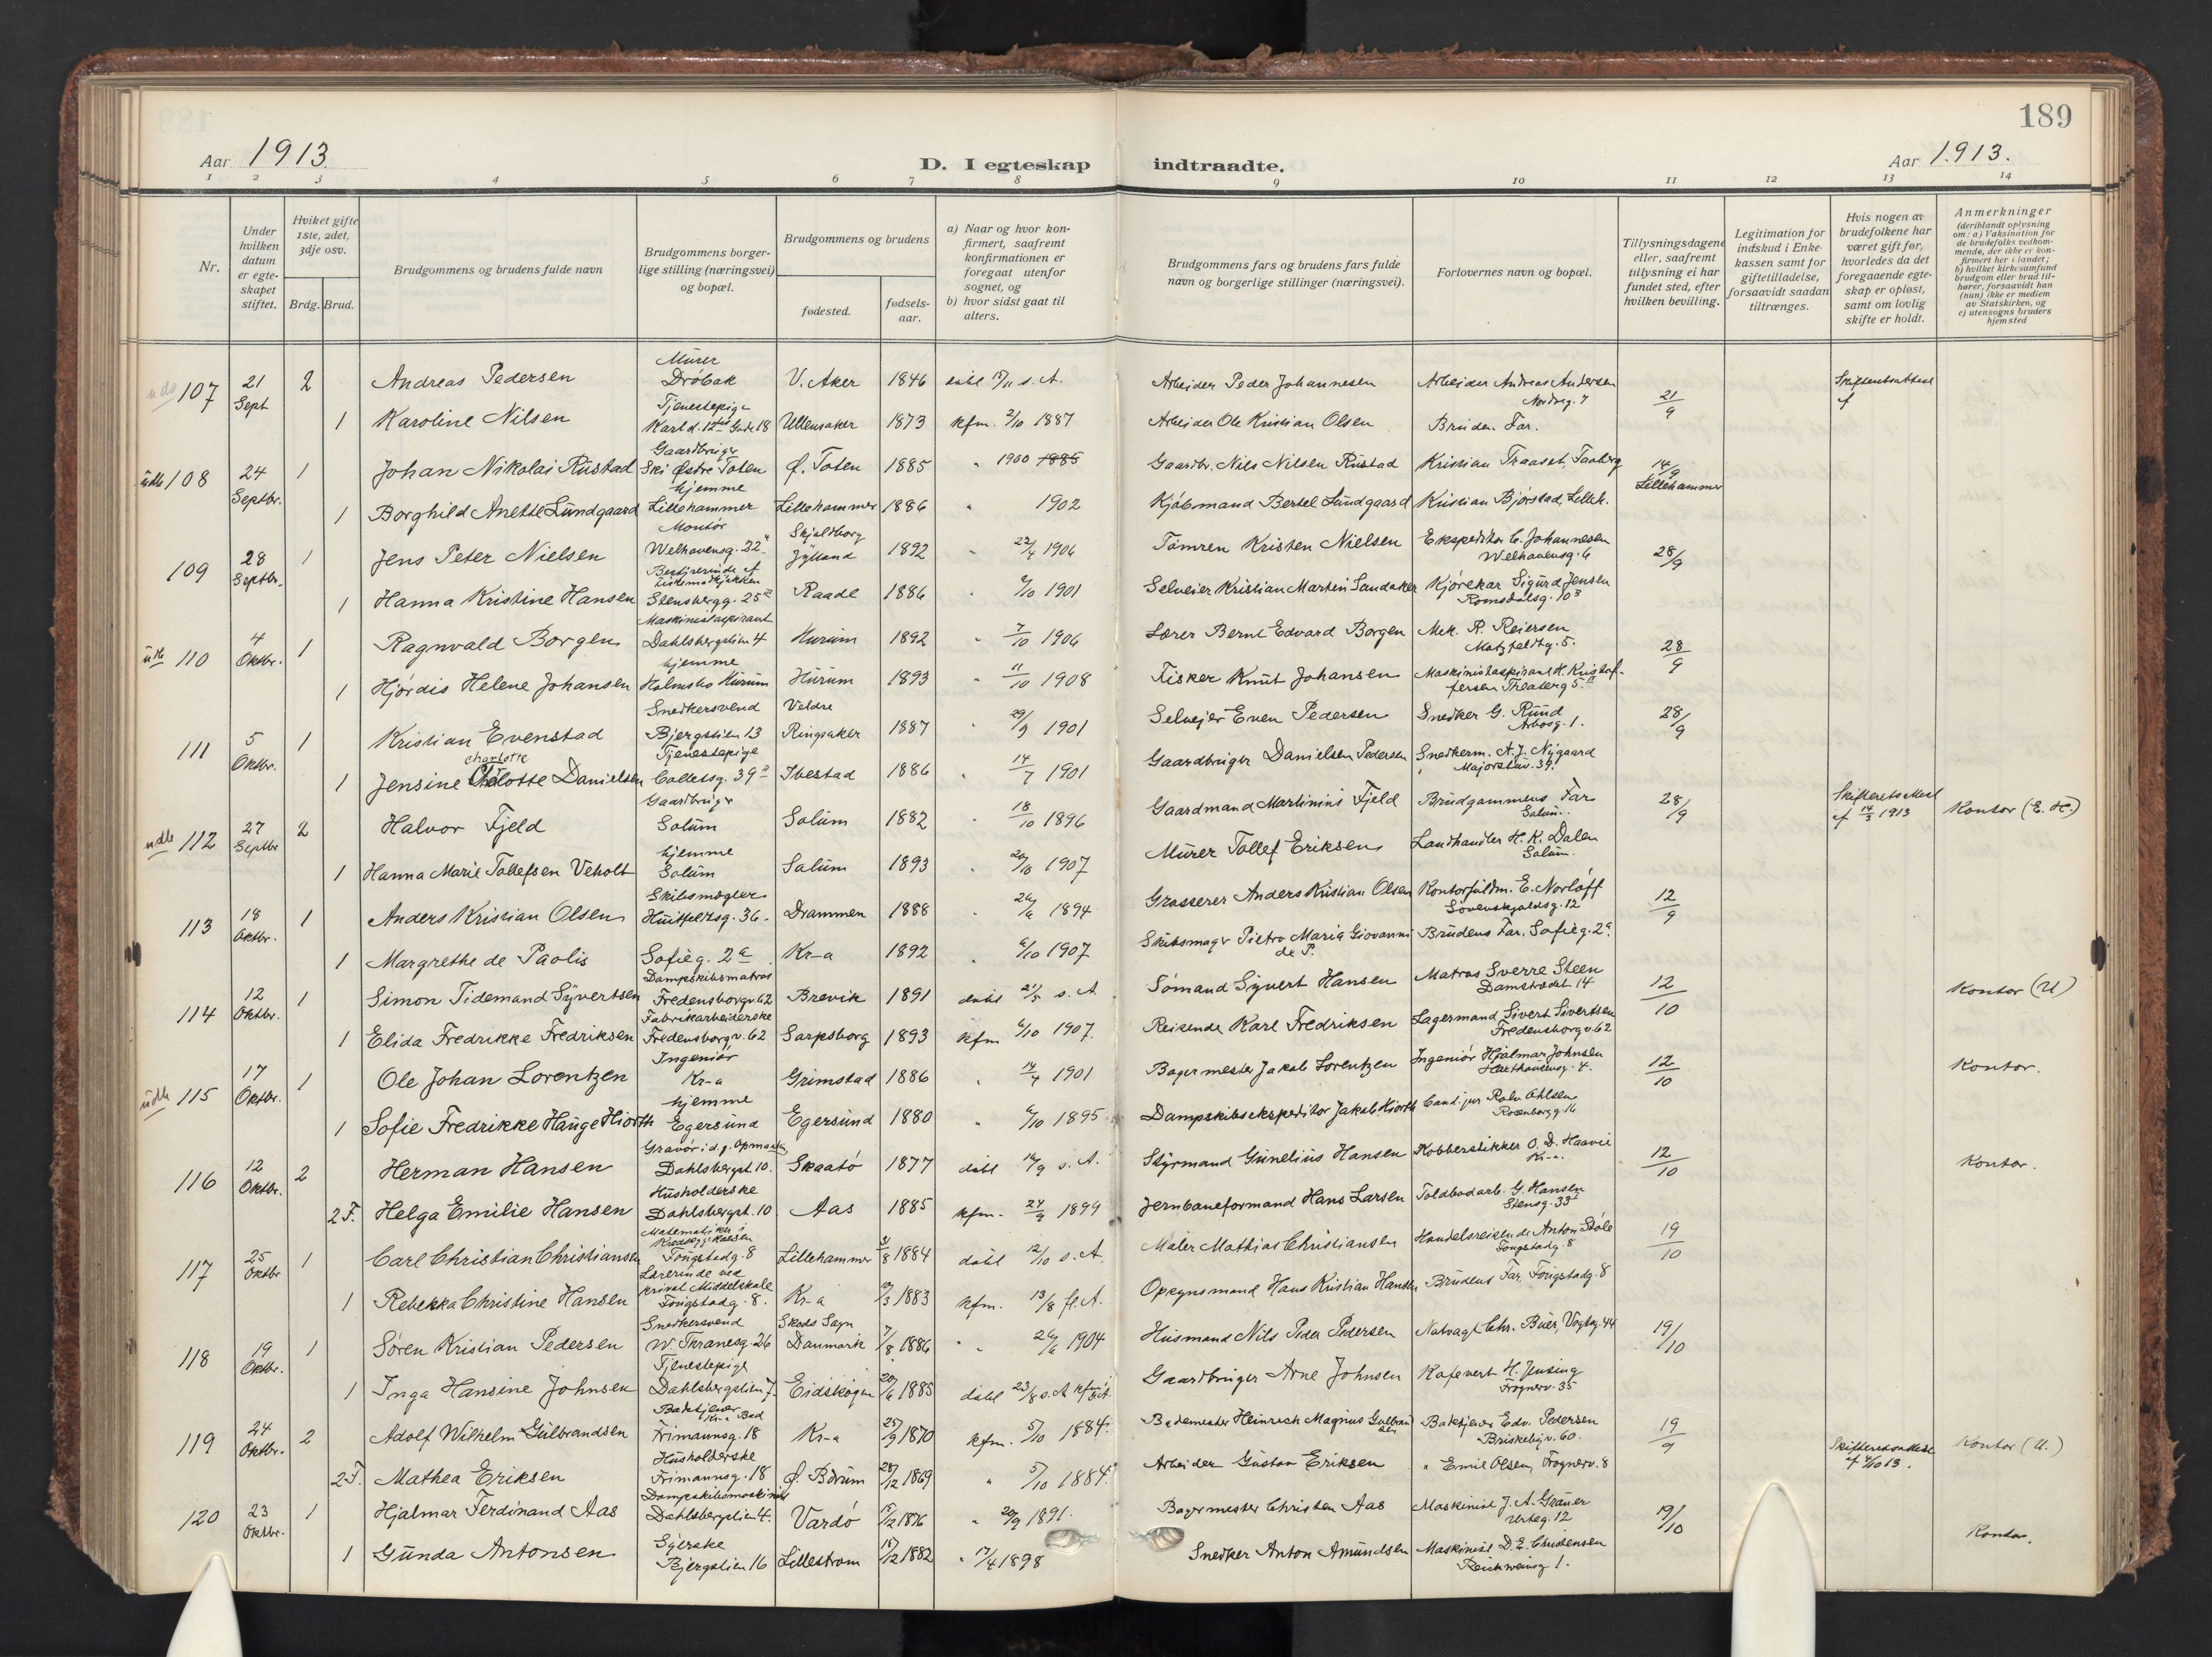 189
Aar 1913.
D. I egteskap indtraadte.
Aar 1913.
1 2 3 4 5 6 7 8 9 10 11 12 13 14
Nr.
Under hvilken datum er egte- skapet stiftet.
Hviket gifte 1ste, 2det, 3dje osv.
Brdg. Brud.
Brudgommens og brudens fulde navn
Brudgommens borger- lige stilling (næringsvei) og bopæl.
Brudgommens og brudens
fødested.
fødsels- aar.
a) Naar og hvor kon- firmert, saafremt konfirmationen er foregaat utenfor sognet, og
b) hvor sidst gaat til alters.
Brudgommens fars og brudens fars fulde navn og borgerlige stillinger (næringsvei).
Forlovernes navn og bopæl.
Tillysningsdagene eller, saafremt tillysning ei har fundet sted, efter hvilken bevilling.
Legitimation for indskud i Enke- kassen samt for giftetilladelse, forsaavidt saadan tiltrænges.
Hvis nogen av brudefolkene har været gift før, hvorledes da det foregaaende egte- skap er opløst, samt om lovlig skifte er holdt.
Anmerkninger (deriblandt oplysning om: a) Vaksination for de brudefolks vedkom- mende, der ikke er kon- firmert her i landet; b) hvilket kirkesamfund brudgom eller brud til- hører, forsaavidt han (hun) ikke er medlem av Statskirken, og c) utensogns bruders hjemsted
107 21 Sept 2 Andreas Pedersen Murer Drøbak V. Aker 1846 s. A. Arbeider Peder Johannesen Arbeider Andreas Andersen Nordreg. 7 21/9 Skifteretsattest
1 Karoline Nilsen Tjenestepige Karl d. 12tes Gade 18 Ullensaker 1873 kfm. 2/10 1887 Arbeider Ole Kristian Olsen Brudens Far.
108 24 Septbr. 1 Johan Nikolai Rustad Gaardbruger Ski Østre Toten Ø. Toten 1885 " 1900 1885 Gaardbr. Nils Nilsen Rustad Kristian Traaset, Faaberg 14/9 Lillehammer
1 Borghild Anette Lundgaard hjemme Lillehammer Lillehammer 1886 " 1902 Kjøbmand Bertel Lundgaard Kristian Bjørstad, Lilleh.
109 28 Septbr. 1 Jens Peter Nielsen Montør Welhavensg. 22 Skjoldborg Jylland 1892 " 22/4 1906 Tømren Kristen Nielsen Ekspeditør C. Johannesen Welhavensg. 6 28/9
1 Hanna Kristine Hansen Bestyrerinde af Stensbergg. 25 Raade 1886 " 6/10 1901 Selveier Kristian Martin Sandaker Kjørekar Sigurd Jensen Romsdalsg. 10
110 4 Oktbr. 1 Ragnvald Borgen Maskinistaspirant Dahlsbergstien 4 Hurum 1892 " 7/10 1906 Lærer Bernt Edvard Borgen Mek. R. Reiersen Motzfeldtg. 5. 28/9
1 Hjørdis Helene Johansen hjemme Holmsbo Hurum Hurum 1893 " 11/10 1908 Fisker Knut Johansen Maskinistaspirant H. Kristof- fersen Theaterg 5.
111 5 Oktbr. 1 Kristian Evenstad Snedkersvend Bjergstien 13 Veldre Ringsaker 1887 " 29/9 1901 Selveier Even Pedersen Snedker G. Rund Arbosg. 1. 28/9
1 Jensine Charlotte Danielsen Tjenestepige Colletsg. 39 Ibestad 1886 " 14/7 1901 Gaardbruger Danielsen Pedersen Snedkerm. A. J. Nygaard Majorstuv. 39.
112 27 Septbr 2 Halvor Fjeld Gaardbruger Solum Solum 1882 " 18/10 1896 Gaardmand Martinius Fjeld Brudgommens Far Solum. 28/9 Skifteretsattest af 14/3 1913 Kontor (E. H.)
1 Hanna Marie Tollefsen Veholt hjemme Solum Solum 1893 " 20/10 1907 Murer Tollef Eriksen Landhandler H. K. Dalen Solum.
113 18 Oktbr. 1 Anders Kristian Olsen Skibsmægler Huitfeldtsg. 36. Drammen 1888 " 26/6 1894 Grosserer Anders Kristian Olsen Kontorfuldm. E. Norløff Løvenskjoldsg. 12 12/9
1 Margrethe de Paolis Sofieg. 2a Kr-a 1892 " 6/10 1907 Skibsmægl Pietro Maria Giovanni de P. Brudens Far. Sofieg. 2a
114 12 Oktbr. 1 Simon Tidemand Syvertsen Dampskibsmatros Fredensborgv. 62 Brevik 1891 21/5 s. A. Sømand Syvert Hansen Matros Sverre Steen Damstrædet 14 12/10 Kontor (U)
1 Elida Fredrikke Fredriksen Fabrikarbeiderske Fredensborgv. 62 Sarpsborg 1893 kfm 6/10 1907. Reisende Karl Fredriksen Lagermand Sivert Sivertsen Fredensborgv 62
115 17 Oktbr. 1 Ole Johan Lorentzen Ingeniør Kr-a Grimstad 1886 " 14/4 1901 Bagermester Jakob Lorentzen Ingeniør Hjalmar Johnsen 12/10 Kontor.
1 Sofie Fredrikke Hauge Hiorth hjemme Egersund Egersund 1880 " 6/10 1895. Dampskibsekspeditør Jakob Hiorth Cand. jur Rolv Ohlsen Rosenborgg. 16
116 12 Oktbr. 2 Herman Hansen Gravør i d. g. Opmaaling Dahlsbergst. 10. Skaatø 1877 14/9 s. A. Styrmand Gunelius Hansen Kobberstikker O. D. Haavie Kr-a. 12/10 Kontor.
2 F. Helga Emilie Hansen Husholderske Dahlsbergst. 10 Aas 1885 kfm. 24/9 1899 Jernbaneformand Hans Larsen Toldbodarb. G. Hansen Stensg. 33
117 25 Oktbr 1 Carl Christian Christiansen Matematiker i Fougstadg. 8 Lillehammer 31/8 1884 12/10 s. A. Maler Mathias Christiansen Handelsreisende Anton Støle Fougstadg. 8 19/10
1 Rebekka Christine Hansen Lærerinde ved privat Middelskole Fougstadg. 8. Kr-a 19/3 1883 kfm. 13/8 fl. A. Opsynsmand Hans Kristian Hansen Brudens Far, Fougstadg. 8
118 19 Oktbr. 1 Søren Kristian Pedersen Snedkersvend W. Thranesg. 26 Skods Sogn Danmark 7/8 1886 " 26/6 1904 Husmand Nils Peder Pedersen Natvagt Chr. Buer, Vogtsg. 44 19/10
1 Inga Hansine Johnsen Tjenestepige Dahlsbergstien 7. Eidskogen 20/6 1885 23/8 s. A. Gaardbruger Arne Johnsen Kafevert H. Jensing Frognerv. 35
119 24 Oktbr. 2 Adolf Wilhelm Gulbrandsen Badetjener Kr.a Bad Frimannsg. 18 Kr-a 25/9 1870 kfm. 5/10 1884. Bademester Heinrich Magnus Gulbrandsen Badetjener Edv. Pedersen Briskebyv. 60. 19/9
2 F. Mathea Eriksen Husholderske Frimannsg. 18 Ø. Bærum 28/12 1869 " 5/10 1884. Arbeider Gustav Eriksen " Emil Olsen, Frognerv. 8 Skifteretsattest af 4/10 13. Kontor (U.)
120 23 Oktbr. 1 Hjalmar Ferdinand Aas Dampskibsmaskinist Dahlsbergstien 4. Vardø 15/2 1876 " 20/9 1891. Bagermester Christen Aas Maskinist J. A. Grauer Urteg. 12 19/10
1 Gunda Antonsen Syerske Bjergstien 16 Lillestrøm 18/12 1882 " 17/4 1898 Snedker Anton Amundsen Maskinist D. E. Christensen Reichweinsg. 1. Kontor.